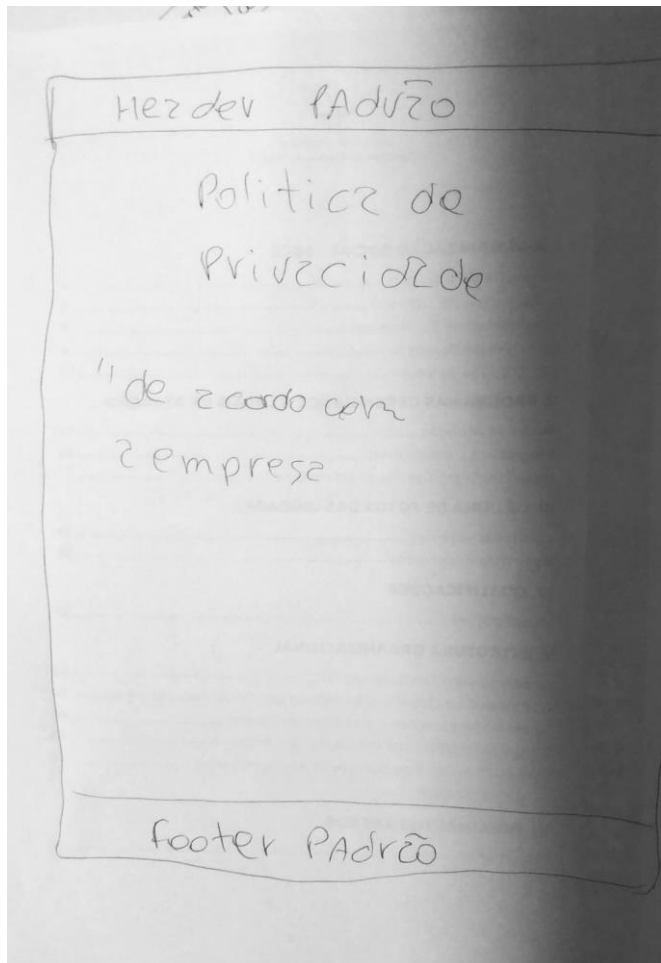 Header PAdrão
Politica de
Privacidade
"de acordo com
a empresa
footer PAdrão